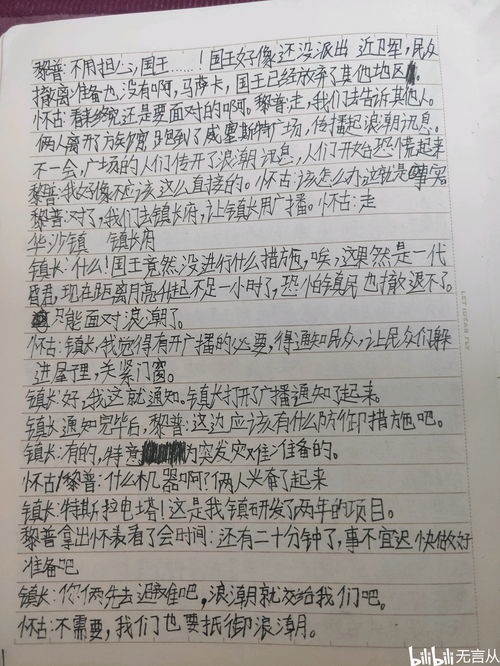 黎普:不用担心,国王……!国王好像还没派出 近卫军,民众
撤离准备也没有啊,马萨卡,国王已经放弃了其他地区。
怀古:看来终究还是要面对的啊。黎普:走,我们去告诉其他人。
俩人离开了方族馆,跑到了威塞斯特广场,传播起浪潮讯息。
不一会,广场的人们传开了浪潮讯息,人们开始恐慌起来
黎普:我好像不应该这么直接的。怀古:该怎么办,这就是事实
黎普:对了,我们去镇长府,让镇长用广播。怀古:走
华沙镇 镇长府
镇长:什么!国王竟然没进行什么措施,唉,这果然是一代
昏君.现在距离月亮升起不足一小时了,恐怕镇民也撤退不了。
只能面对浪潮了。
怀古:镇长,我觉得有开广播的必要,得通知民众,让民众们躲
进屋理,关紧门窗。
镇长:好,我这就通知.镇长打开了广播通知了起来。
镇长通知完毕后,黎普:这边应该有什么防御措施吧。
镇长:有的,特意为突发灾难准备的。
怀古/黎普:什么机器啊?俩人兴奋了起来
镇长:特斯拉电塔!这是我镇研发了两年的项目。
黎普拿出怀表看了会时间:还有二十分钟了,事不宜迟 快做好
准备吧
镇长:你俩先去避难吧,浪潮就交给我们吧。
怀古:不需要,我们也要抵御浪潮。
LET IDEAR FLY
bilibili 无言从